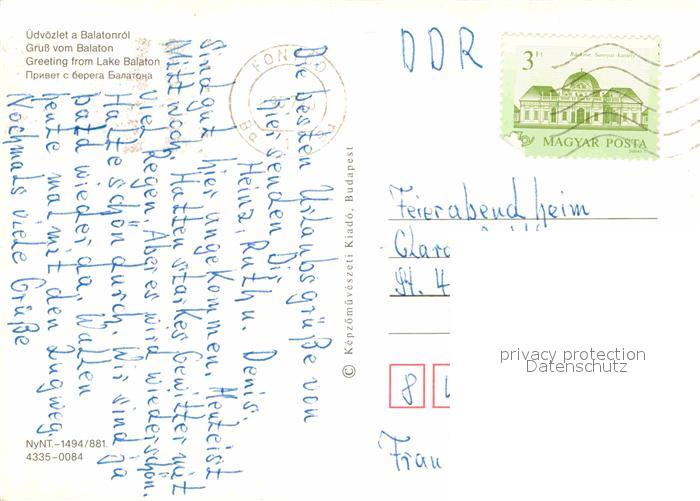 Üdvözlet a Balatonról
Gruß vom Balaton
Greeting from Lake Balaton
Привет с берега Балатона
Die besten Urlaubsgrüße von
hier senden Dir
Heinz, Ruth u. Denis.
Sind gut hier angekommen. Heute ist
Mittwoch. Hatten starkes Gewitter mit
viel Regen. Aber es wird wieder schön.
Halte schön durch. Wir sind ja
bald wieder da. Wollen
heute mal mit den Zug weg.
Nochmals viele Grüße
NyNT.–1494/881.
4335–0084
© Képzőművészeti Kiadó, Budapest
FONYÓD
DDR
3 Ft
MAGYAR POSTA
Feierabendheim
Clara
St. 4
8
Frau
privacy protection
Datenschutz